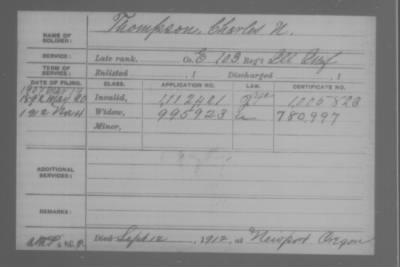 NAME OF SOLDIER: Thompson, Charles H.
SERVICE: Late rank, Co. E 103 Reg't Ill Inf
TERM OF SERVICE: Enlisted , 1 Discharged , 1
DATE OF FILING. CLASS. APPLICATION NO. LAW. CERTIFICATE NO.
Invalid, 1112421 1005823
Widow, 995923 780,997
Minor,
ADDITIONAL SERVICES:
REMARKS:
Died Sept 12 1912, at Newport Oregon